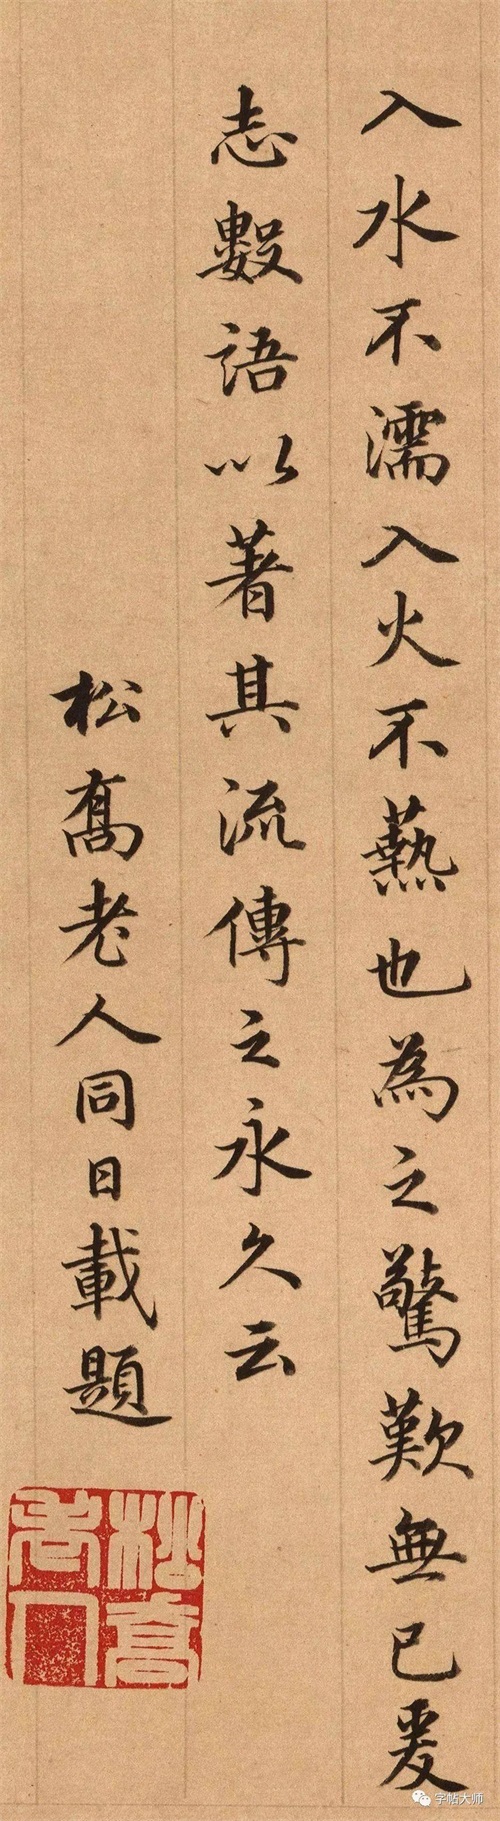 入水不濡入火不爇也為之驚歎無已爰
志數語以著其流傳之永久云
松喬老人同日載題
松喬老人
字帖大师